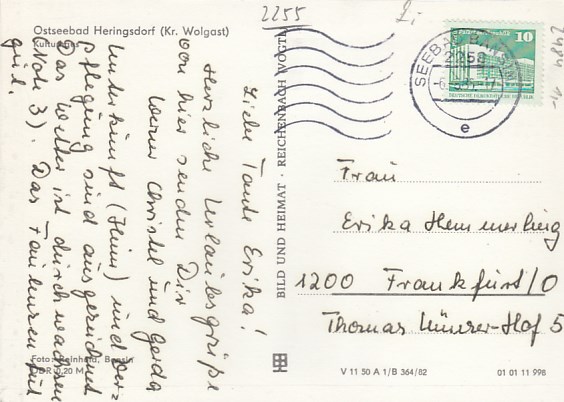 2255
Ostseebad Heringsdorf (Kr. Wolgast)
Kulturhaus
Liebe Tante Erika!
Herzliche Urlaubsgrüße
von hier senden Dir
Christel und Gerda
Unterkunft (Heim) und Ver-
pflegung sind ausgezeichnet
Das Wetter ist durchwachsen
(Note 3). Das
gut.
Foto: Reinhold, Bansin
DDR 0,20 M
BILD UND HEIMAT · REICHENBACH (VOGTL
SEEBAD BANSIN
2258
e
10
DEUTSCHE DEMOKRATISCHE REPUBLIK
Frau
Erika Hemmerling
1200 Frankfurt/O
Thomas Münzer-Hof 5
V 11 50 A 1/B 364/82
01 01 11 998